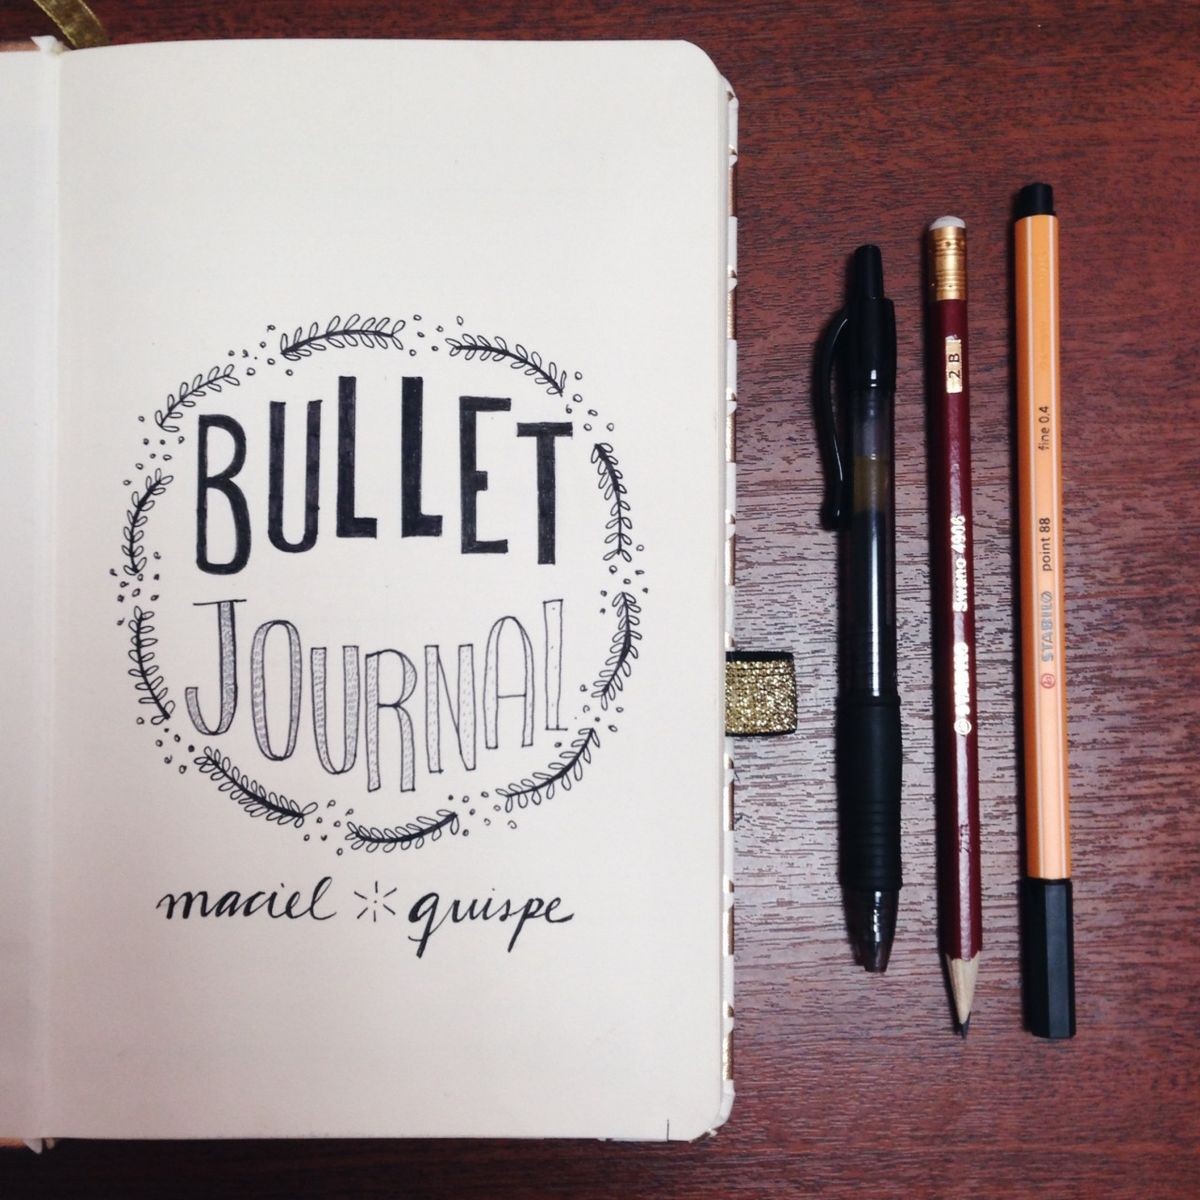 BULLET
JOURNAL
maciel quispe
2B
Swano 4906
STABILO
STABILO point 88 fine 0,4